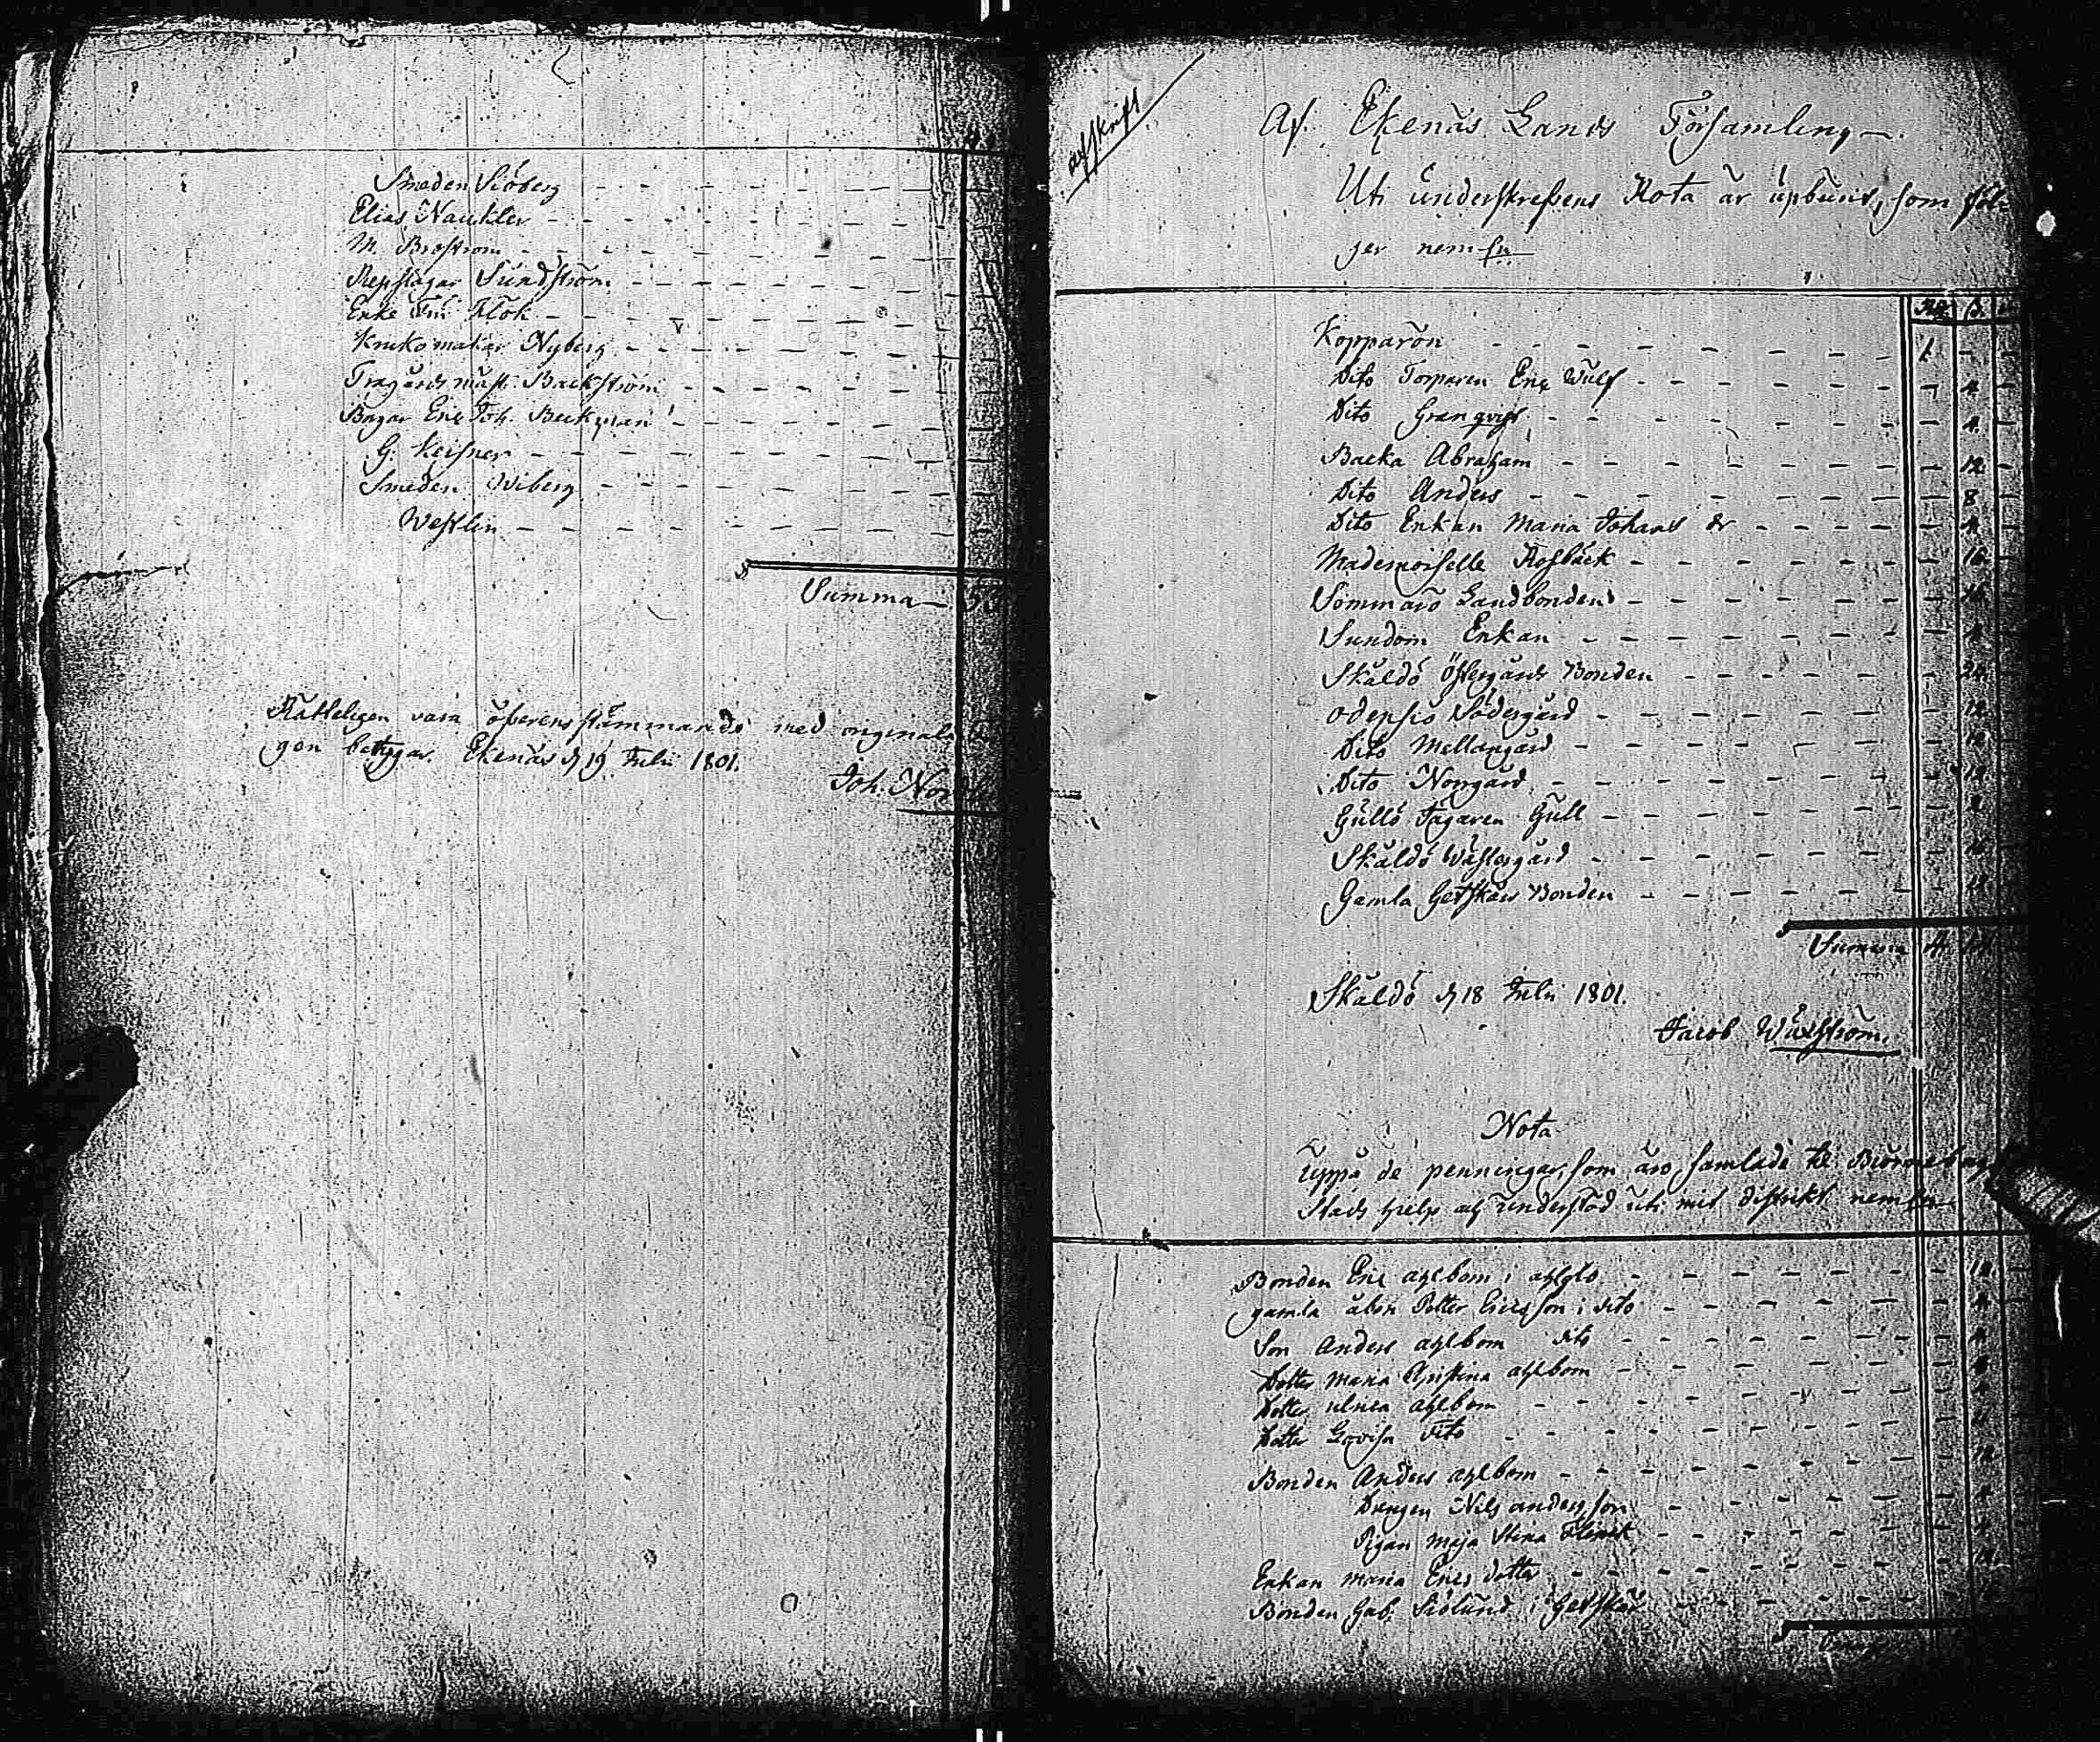 Smeden Siöberg
Elias Naukler
M. Broström
Repslagar Sundström
Enke Fru Flök
Krukomakar Nyberg
Trägårds mäst. Backström
Bagar Eric Joh. Beckman
G. Keisner
Smeden Wiberg
Westlin
Summa
Rätteligen vara öfverensstämmande med original
gen betygar. Ekenäs d 19 Julii 1801.
Joh.
afskrift
Af Ekenäs Lands Församling
Uti underskrefvens Rota är upburit, som föl-
jer nemln
Kopparön 1. - -
Dito Torparen Eric Wulf - 4. -
Dito Granqvist - 4. -
Backa Abraham - 12 -
Dito Anders - 8 -
Dito Enkan Maria Johans dr - 4. -
Mademoiselle Rosbäck - 16 -
Sommarö Landbonden - 16 -
Sundom Enkan
Skåldö Östergårds Bonden - 24 -
Odensiö Södergård - 12
Dito Mellangård - 12
Dito Norrgård - 12
Gullö Jägaren Gull
Skåldö Wästergård
Gamla Getskärs Bonden
Summa 4.
Skåldö d 18 Julii 1801.
Jacob Wäxström.
Nota
Uppå de penningar, som äro samlade til Biörneborgs
Stads hjelp och understöd uti mit distrikt nemln
Bonden Eric ahlbom i
gamla åbon Petter Ericsson i dito
Son Anders ahlbom dito
Dotter Maria Christina ahlbom
Dotter Ulrica ahlbom
Dotter Lovisa dito
Bonden Anders ahlbom
Drengen Nils andersson
Pigan Maja Stina
Enkan Maria Erics dotter
Bonden Gab. Siölund i Getskär